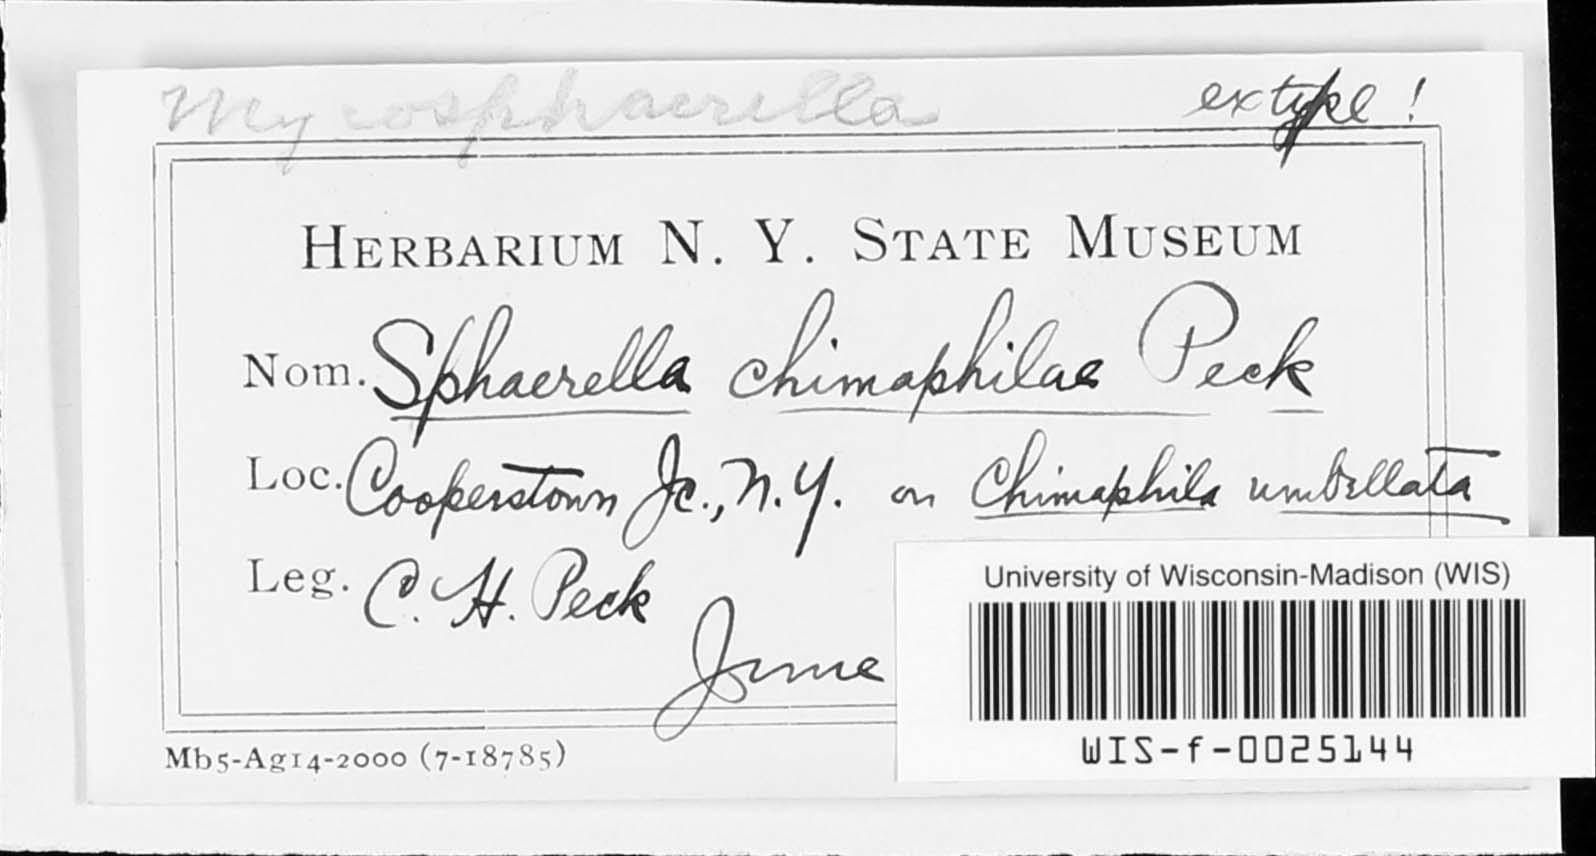 Mycosphaerella
ex type!
HERBARIUM N. Y. STATE MUSEUM
Nom. Sphaerella chimaphilae Peck
Loc. Cooperstown Jc., N.Y. on Chimaphila umbellata
Leg. C. H. Peck
June
University of Wisconsin-Madison (WIS)
WIS-f-0025144
Mb5-Ag14-2000 (7-18785)